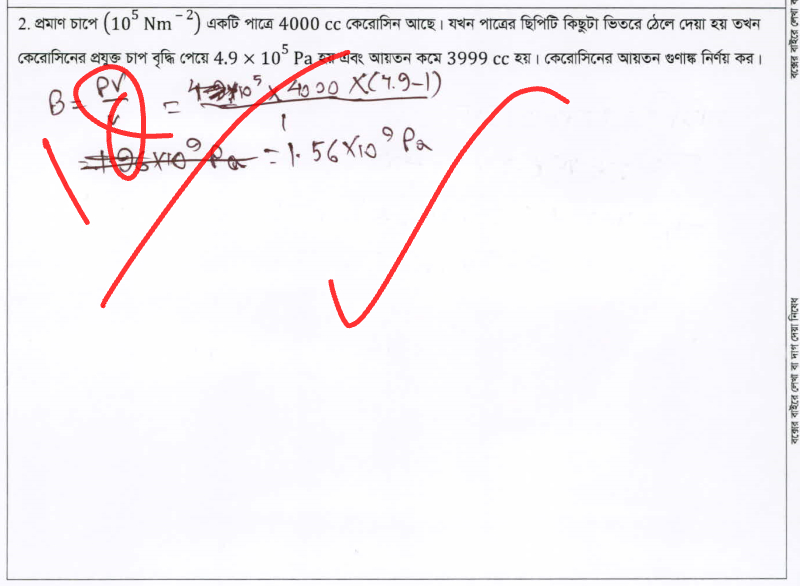 2. প্রমাণ চাপে (10⁵ Nm⁻²) একটি পাত্রে 4000 cc কেরোসিন আছে। যখন পাত্রের ছিপিটি কিছুটা ভিতরে ঠেলে দেয়া হয় তখন
কেরোসিনের প্রযুক্ত চাপ বৃদ্ধি পেয়ে 4.9 × 10⁵ Pa হয় এবং আয়তন কমে 3999 cc হয়। কেরোসিনের আয়তন গুণাঙ্ক নির্ণয় কর।
B = PV/v = ×10⁵ × 4000 × (4.9-1) / 1
= 1.96×10⁹ Pa = 1.56×10⁹ Pa
বক্সের বাইরে লেখা ব
বক্সের বাইরে লেখা বা দাগ দেয়া নিষেধ